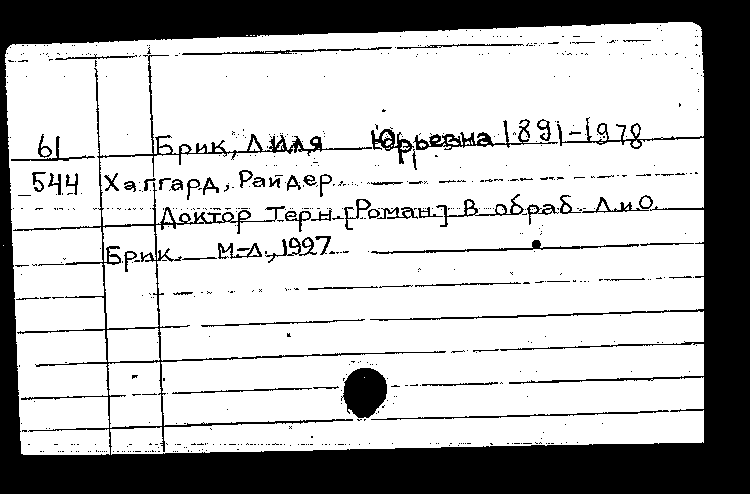 61 Брик, Лиля Юрьевна 1891-1978
544 Хаггард, Райдер.
Доктор Терн. [Роман.] В обраб. Л. и О.
Брик. М.-Л., 1927.